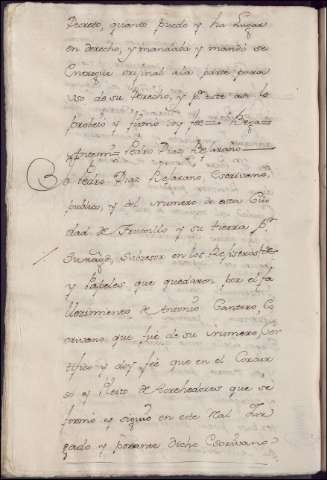 Decreto, quanto puedo y ha Lugar
en derecho, y mandaba y mandò se
Entregue orijinal ala parte para
uso de su derecho, y pr. este asi lo
probeyo y firmò doy fee
Antemi= Pedro Diaz Bejarano
Yo Pedro Diaz Bejarano, Escrivano,
publico, y del Numero de esta Ciu
dad de Truxillo y su tierra pr.
Su Magd., Subcesor en los Rejistros
y Papeles que quedaron por el fa
llecimiento de Antonio Cantero, Es
crivano que fué de su Numero, Cer
tifico y doy fee que en el Concur
so y Pleito de Acrehedores que se
formò y siguio en este Real Juz
gado y por ante dicho Escrivano